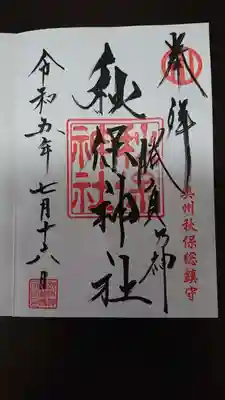 奉拝
勝負の神
奥州秋保総鎮守
秋保神社
秋保神社
令和五年七月十六日